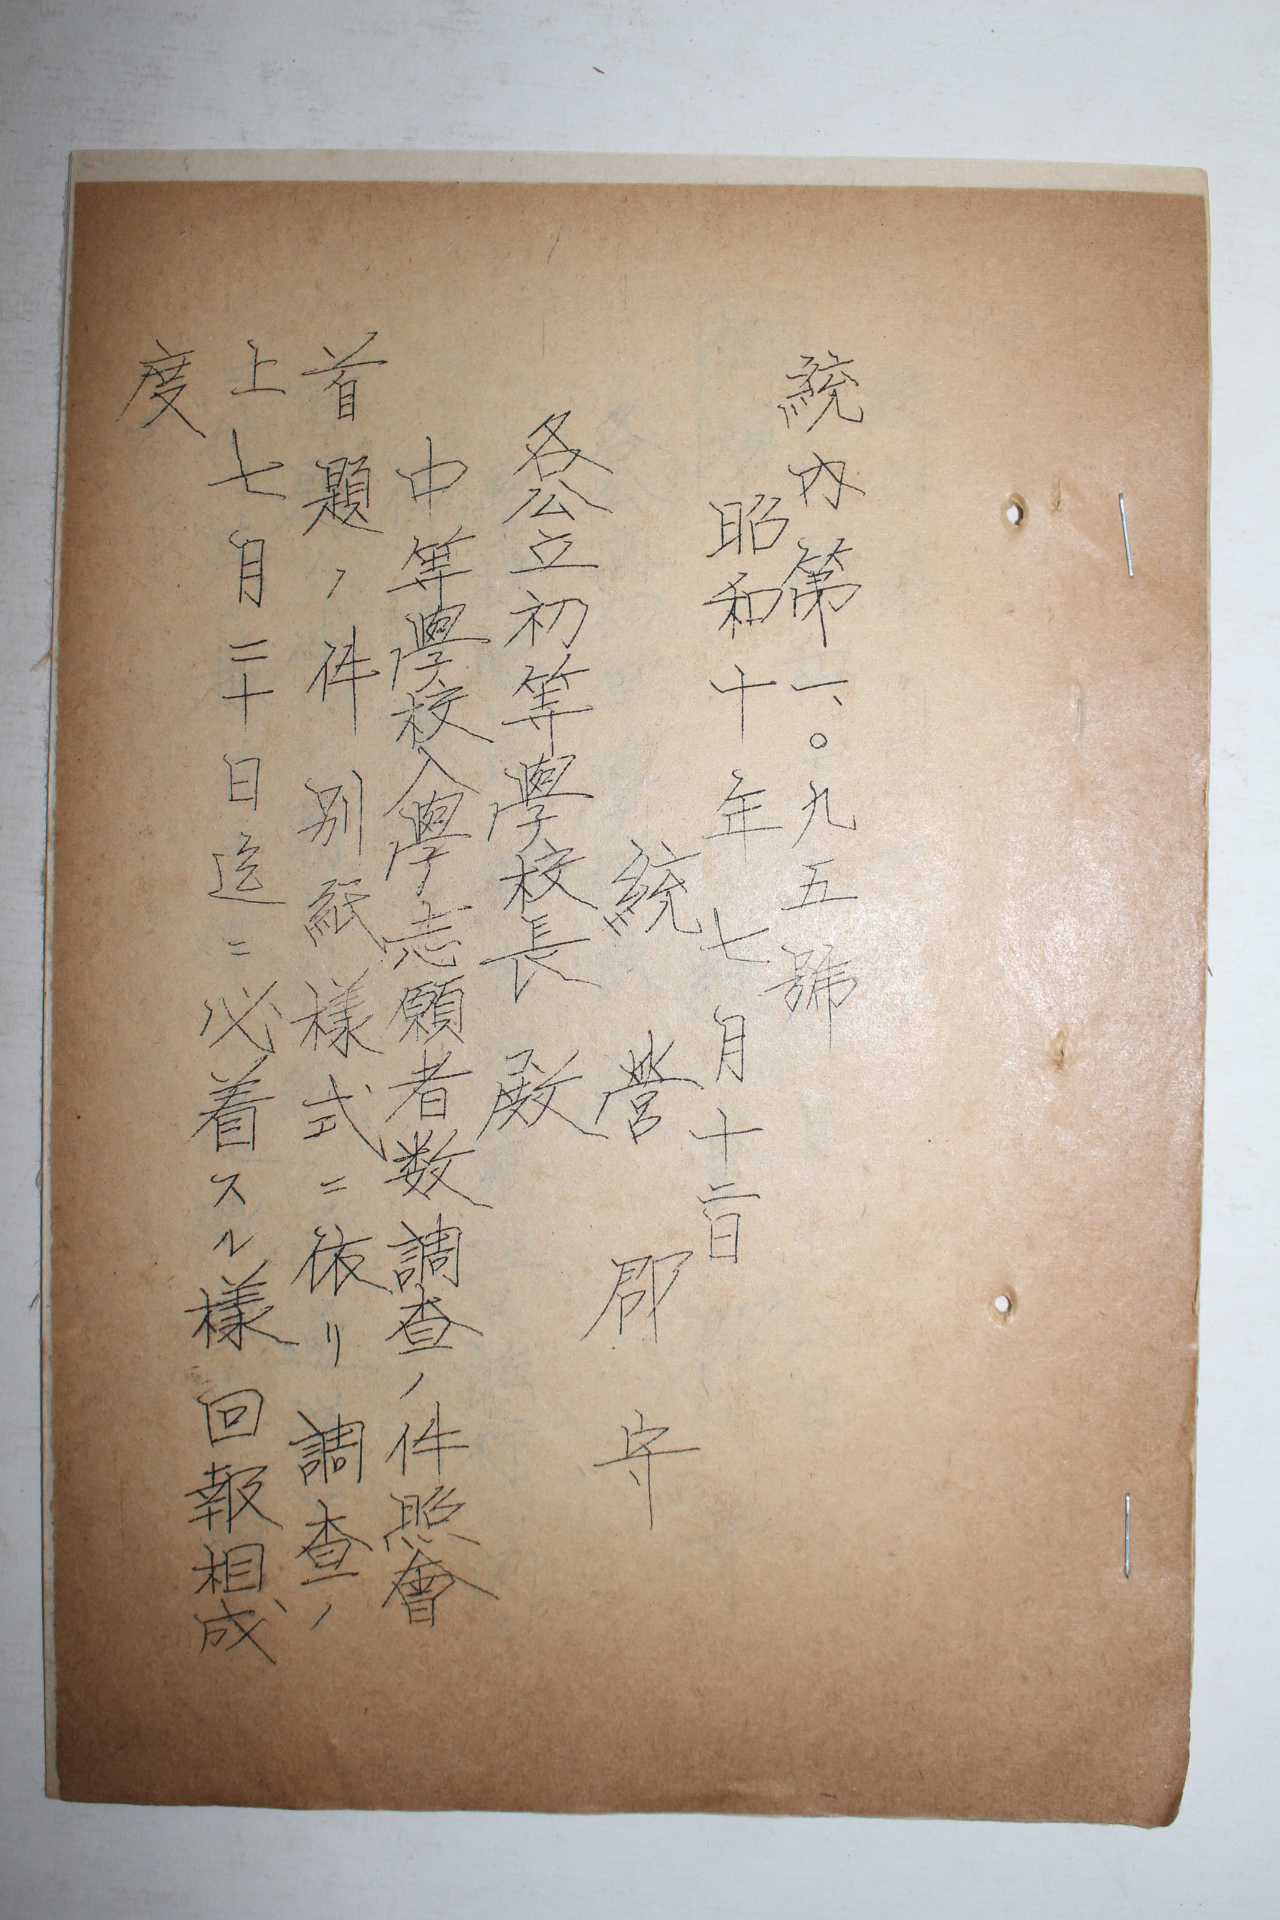 統内第一、〇九五號
昭和十年七月十二日
統營郡守
各公立初等學校長殿
中等學校入學志願者数調査ノ件照會
首題ノ件別紙樣式ニ依リ調査ノ
上七月二十日迄ニ必着スル樣回報相成
度